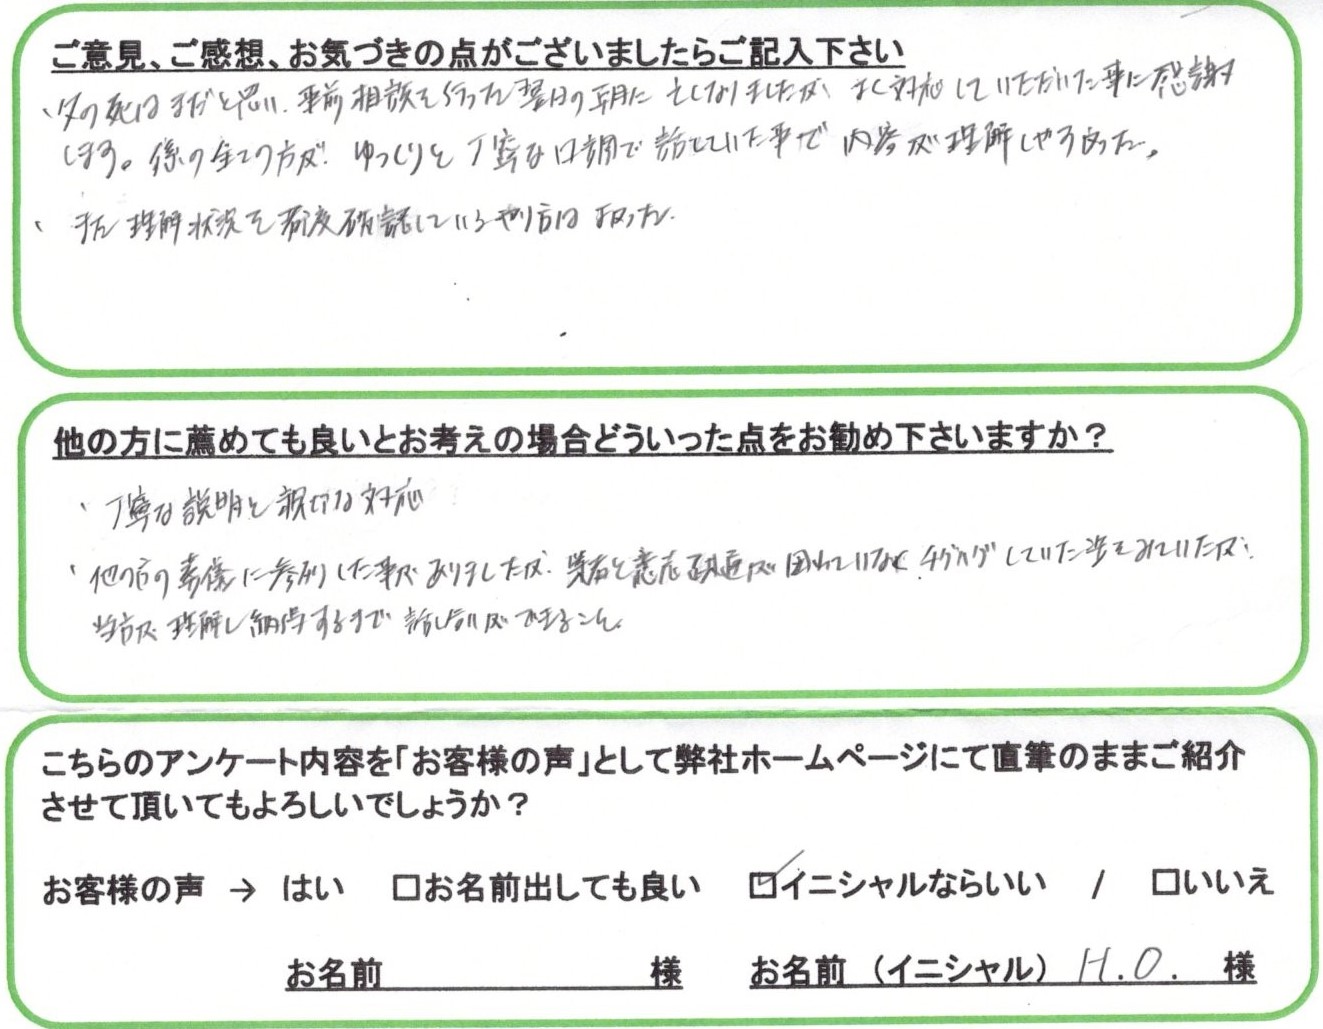 ご意見、ご感想、お気づきの点がございましたらご記入下さい
、父の死はまだと思い、事前相談を行った翌日の朝に そくなりましたが、よく対応していただいた事に感謝
します。係の全ての方が、ゆっくりと丁寧な口調で話していた事で 内容が理解しやすかった。
、また理解状況を都度確認しているやり方は よかった。
他の方に薦めても良いとお考えの場合どういった点をお勧め下さいますか？
、丁寧な説明と親切な対応
、他の方の葬儀に参列した事がありましたが、業者と意志疎通が図れていなく チグハグしていた姿をみていたが、
当方が理解し納得するまで 話し合いができること。
こちらのアンケート内容を「お客様の声」として弊社ホームページにて直筆のままご紹介
させて頂いてもよろしいでしょうか？
お客様の声 → はい □お名前出しても良い ☑イニシャルならいい / □いいえ
お名前 様 お名前（イニシャル） H.O. 様